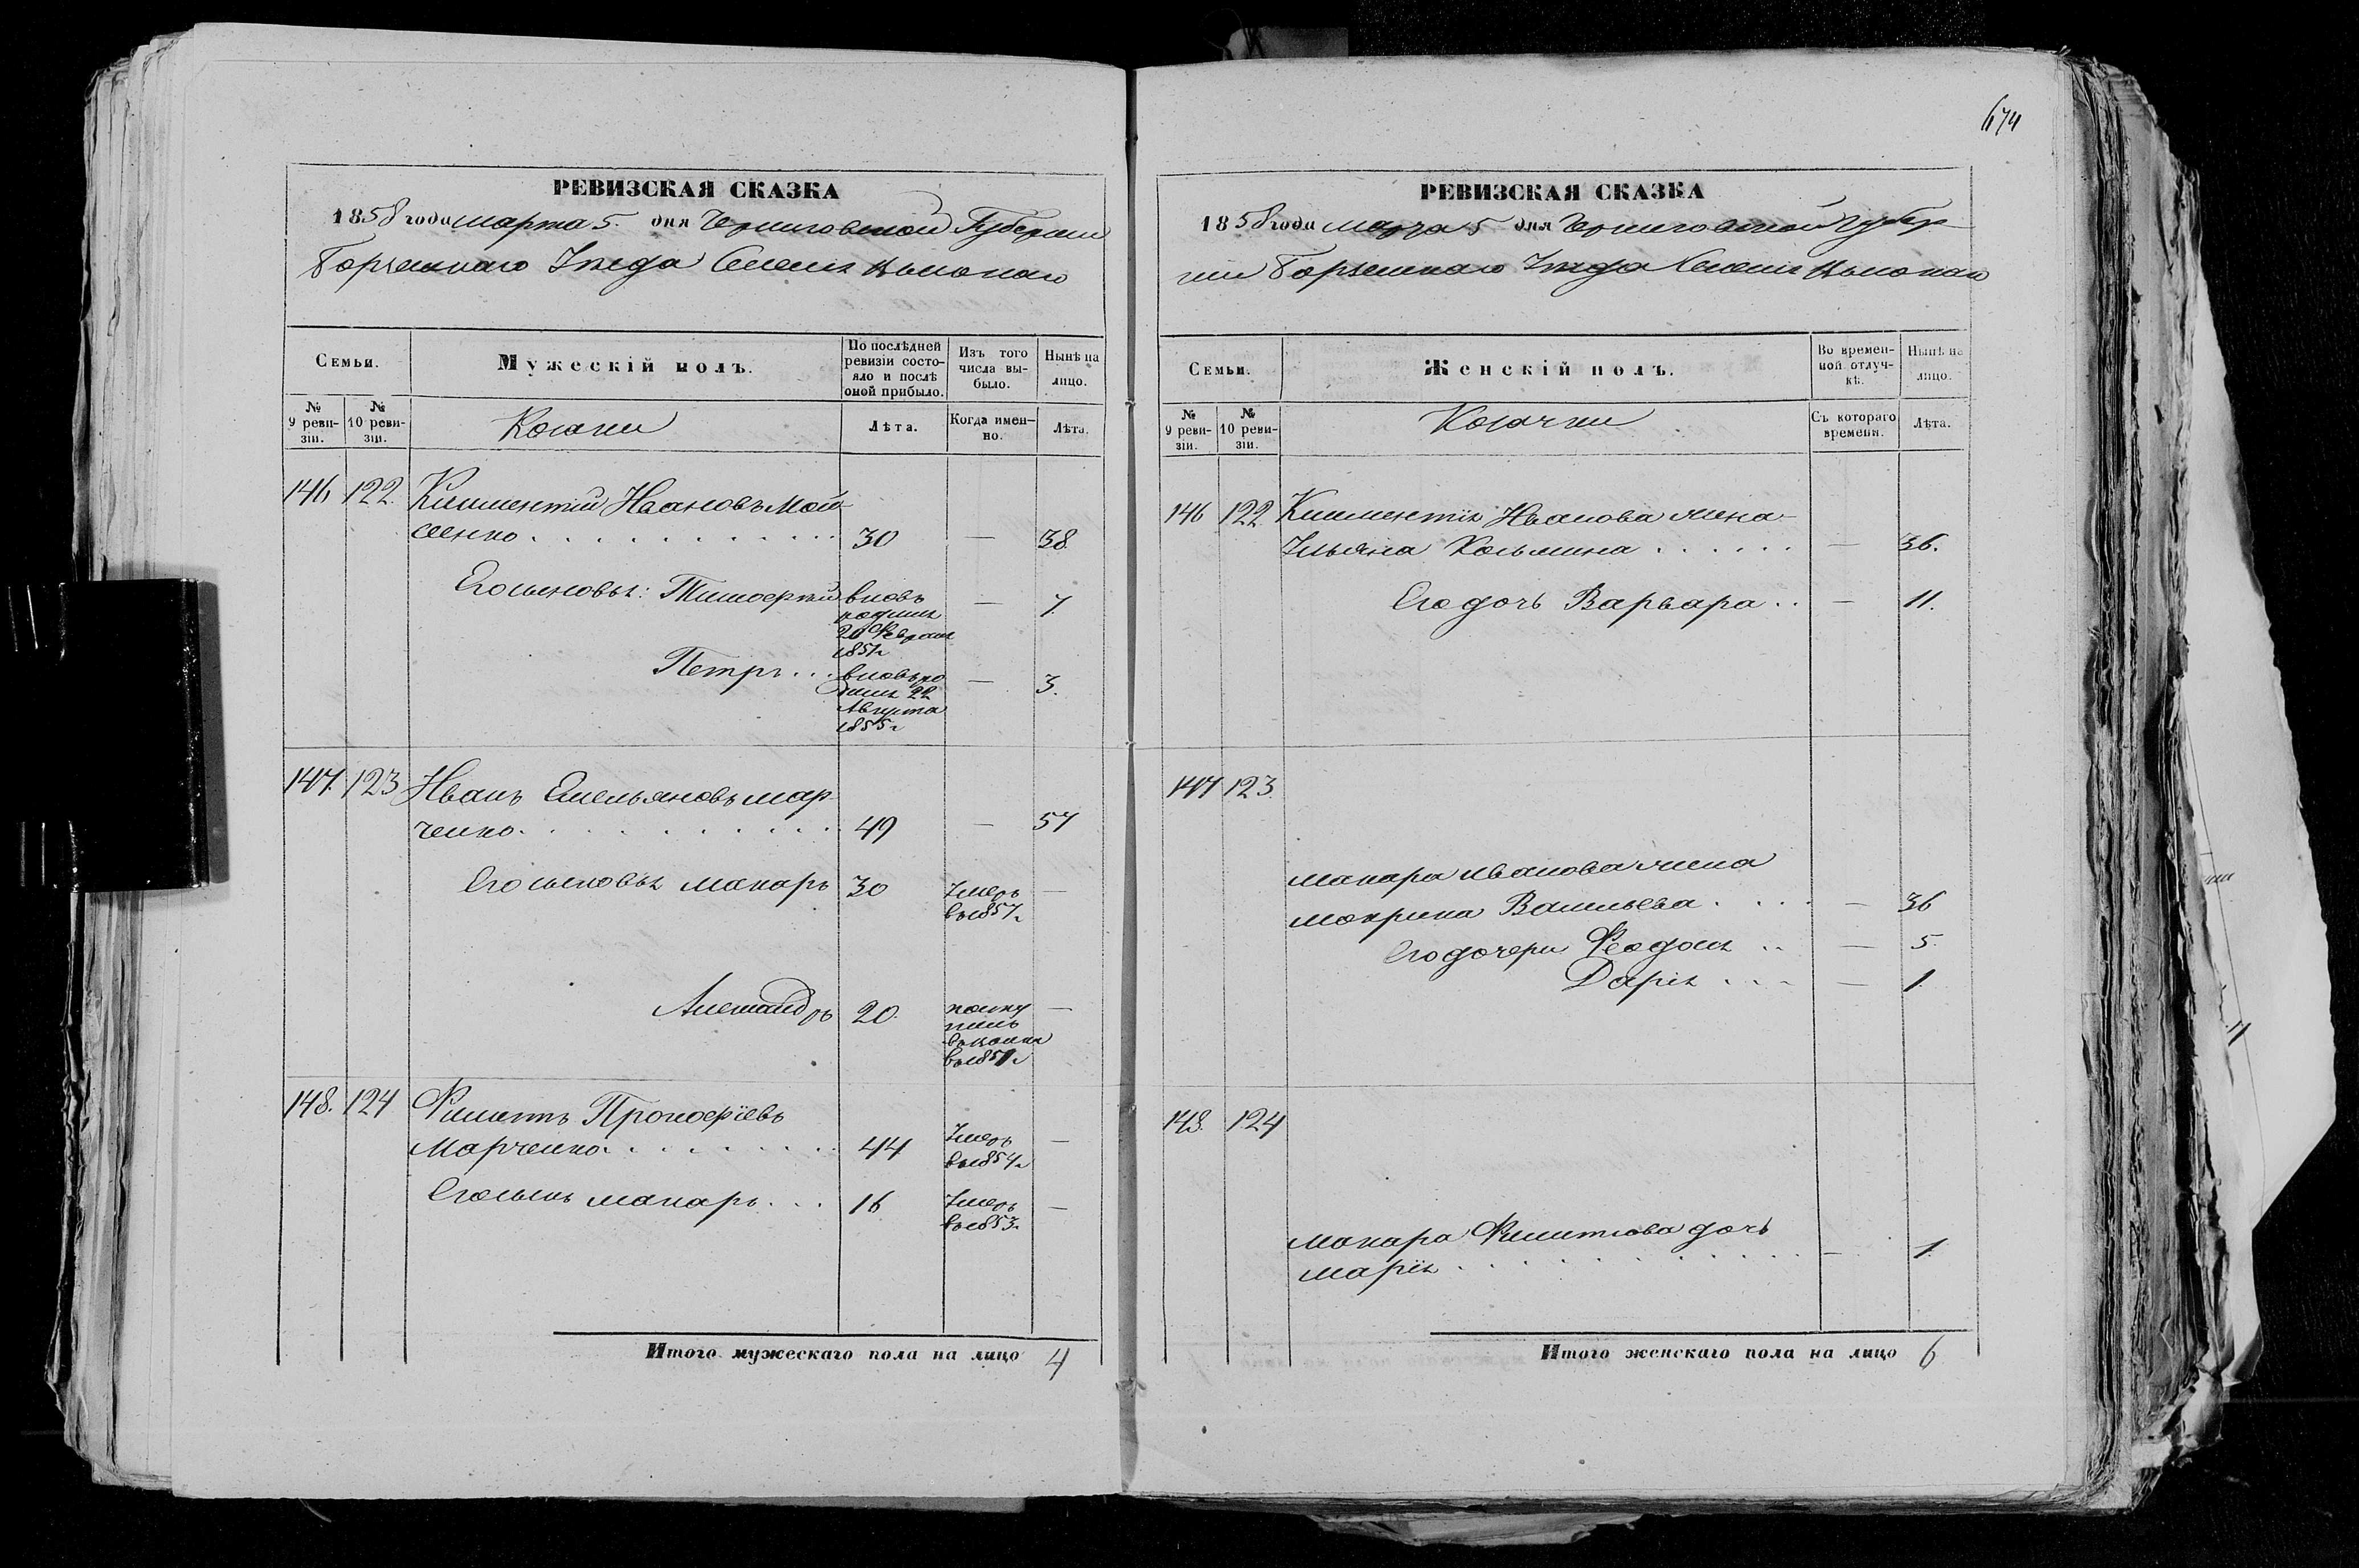 674
РЕВИЗСКАЯ СКАЗКА
1858 года марта 5. дня Черниговской Губернии
Борзенскаго Уезда Селенія
Семьи.
Мужескій полъ.
По послѣдней ревизіи состояло и послѣ оной прибыло.
Изъ того числа выбыло.
Нынѣ на лицо.
№ 9 ревизіи.
№ 10 ревизіи.
Козаки
Лѣта.
Когда именно.
Лѣта.
146 122. Климентій Ивановъ Мой-
сенко 30 — 38.
Его сыновья: Тимофей вновь — 7.
рожденъ
20 Февраля
1851 г
Петръ вновь ро — 3.
жденъ 22
Августа
1855 г
147. 123 Иванъ Емельяновъ Мар-
ченко 49 — 57
Его сыновья Макаръ 30 Умеръ —
въ 1857 г
Александръ 20. —
148. 124 Филиппъ Прокофіевъ
Марченко 44 Умеръ —
въ 1854 г
Его сынъ Макаръ 16 Умеръ —
въ 1853 г
Итого мужескаго пола на лицо 4
РЕВИЗСКАЯ СКАЗКА
1858 года марта 5 дня Черниговской Губер-
ніи Борзенскаго Уезда Селенія
Семьи.
Женскій полъ.
Во временной отлучкѣ.
Нынѣ на лицо.
№ 9 ревизіи.
№ 10 ревизіи.
Козачки
Съ котораго времени.
Лѣта.
146 122. Климентія Иванова жена
Ульяна Козьмина — 36.
Его дочь Варвара — 11.
147 123.
Макара Иванова жена
Мокрина Васильева — 36
Его дочери Феодосія — 5.
Дарія — 1.
148. 124
Макара Филиппова дочь
Марія — 1.
Итого женскаго пола на лицо 6